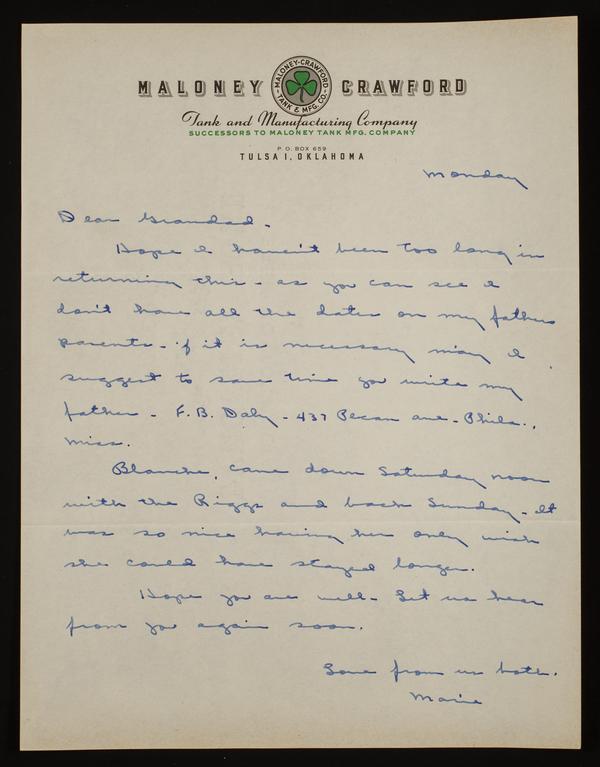 MALONEY CRAWFORD
MALONEY-CRAWFORD TANK & MFG. CO.
Tank and Manufacturing Company
SUCCESSORS TO MALONEY TANK MFG. COMPANY
P. O. BOX 659
TULSA 1, OKLAHOMA
Monday
Dear Grandad.
Hope I haven't been too long in
returning this - as you can see I
don't have all the dates on my fathers
parents - if it is necessary may I
suggest to save time you write my
father - F. B. Daly - 437 Pecan ave - Phila.,
Miss.
Blanche, came down Saturday noon
with the Riggs and back Sunday - It
was so nice having her only wish
she could have stayed longer.
Hope you are well - Let us hear
from you again soon.
Love from us both.
Marie